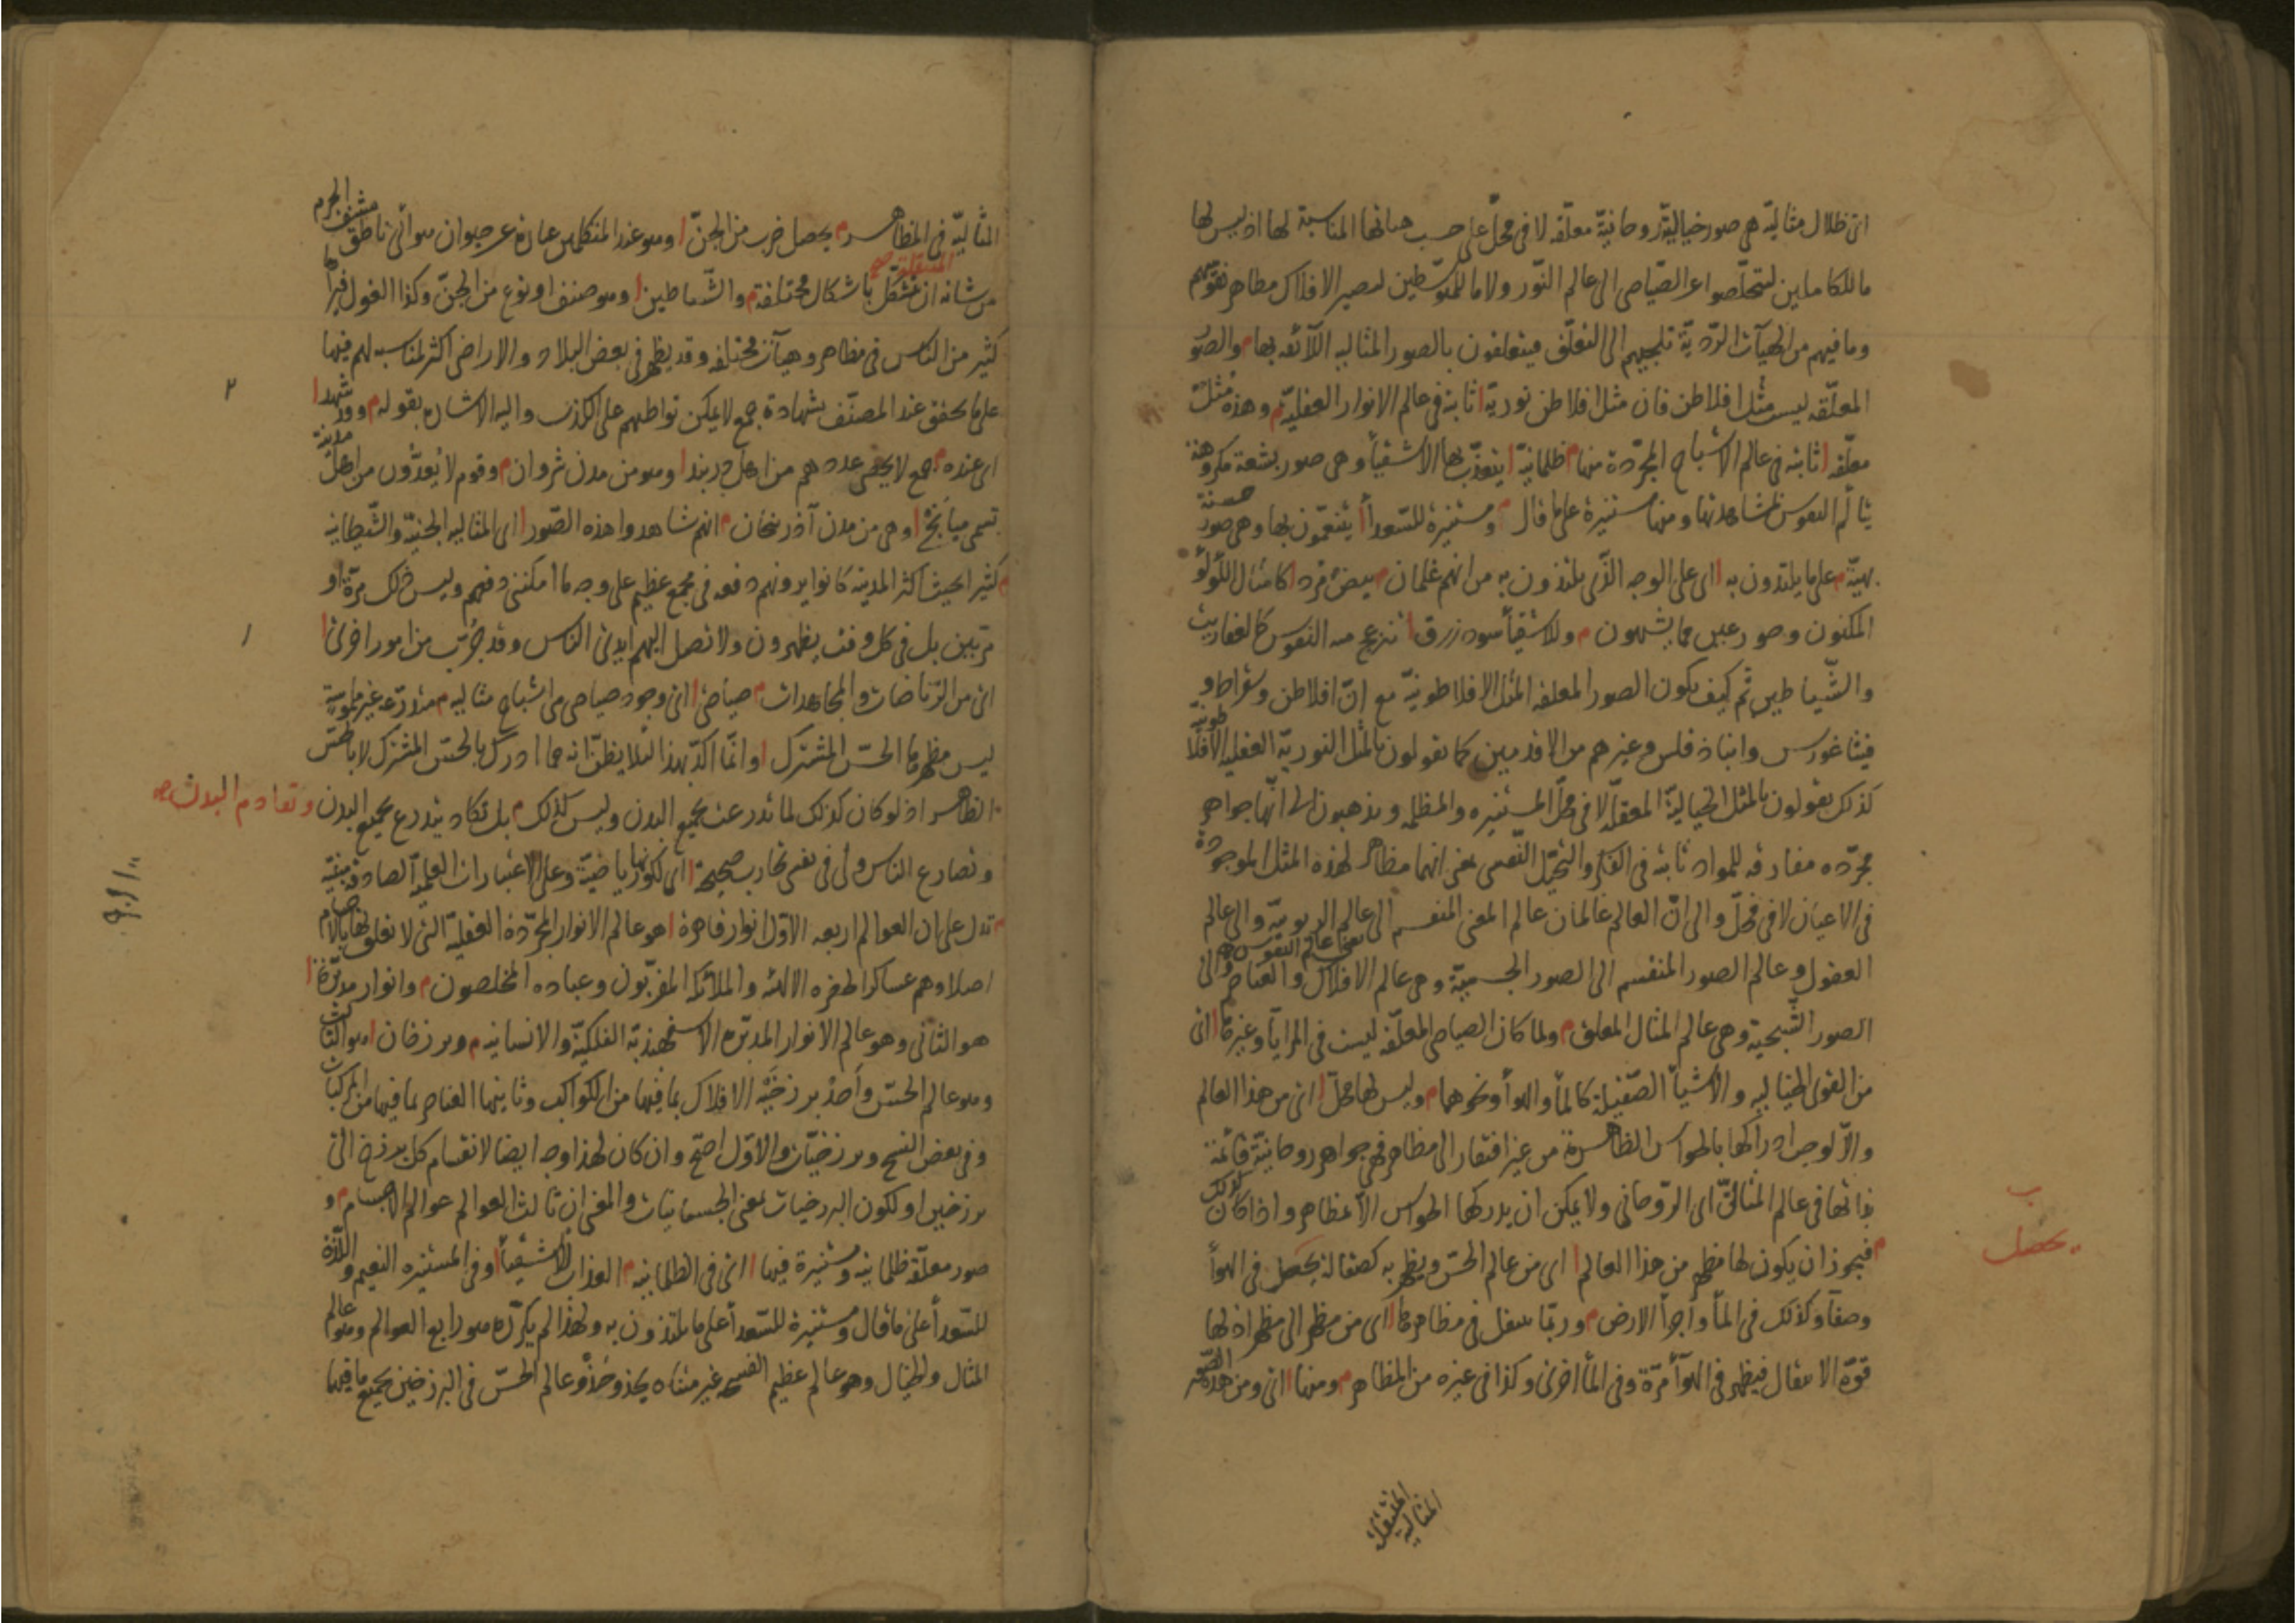 اى ظلال مثاليّة هى صور خياليّة روحانيّة معلّقه لا فى محلّ على حسب هيأتها المناسبة لها اذ ليس لها
ما للكاملين لتخلّصوا عن الصّياصى الى عالم النّور ولا ما للمتوسّطين لتصير الافلاك مظاهر نفوسهم
وما فيهم من الهيآت الرّديّة تلجيهم الى التعلّق فيتعلقون بالصور المثاليه اللآئقه بها م والصّور
المعلّقه ليست مثل افلاطن فان مثل افلاطن نوريّة ا ثابتة فى عالم الانوار العقليّة م وهذه مُثل
معلّقه ا ثابته فى عالم الاشباح المجرّدة منها م ظلمانيّة ا يتعذّب بها الاشقيأ وهى صور بشعة مكروهة
يتألّم النفوس بمشاهدتها ومنها مستنيرة على ما قال م ومستنيرة للسّعدأ ا يتنعّمون بها وهى صور حسنة
بهيّة م على ما يلتذون به ا اى على الوجه الّذى يلتذون به من انهم غلمان م بيض مُرد ا كامثال اللؤلؤ
المكنون وحور عين مما يشتهون م وللاشقيأ سود زرق ا تنزعج منه النفوس كالعفاريت
والشّياطين ثم كيف يكون الصور المعلقه المثل الافلاطونيّة مع انّ افلاطن وسقراط و
فيثاغورس وانباذقلس وغيرهم من الاقدمين كما يقولون بالمثل النوريّة العقليه الافلاطونيّة
كذلك يقولون بالمثل الخياليّة المعقلّة لا فى محلّ المستنيره والمظلمه ويذهبون الى انّها جواهر
مجرّده مفارقه للمواد ثابته فى الفكر والتخيّل النّفسى بمعنى انهما مظاهر لهذه المثل الموجودة
فى الاعيان لا فى محلّ والى انّ العالم عالمان عالم المعنى المنقسم الى عالم الربوبيّة والى عالم
العقول يعنى عالم النفوس وعالم الصور المنقسم الى الصور الجسميّة وهى عالم الافلاك والعناصر والى
الصور الشّبحية وهى عالم المثال المعلق م ولما كان الصياصى المعلّقه ليست فى المرايا وغيرها ا اى
من القوى الخياليه والاشيأ الصّقيلة كالمأ والهوأ ونحوهما م وليس لها محلّ ا اى من هذا العالم
والّا لوجب ادراكها بالحواس الظاهرة من غير افتقار الى مظاهر فهى جواهر روحانيّة قائمة
بذاتها فى عالم المثالىّ اى الرّوحانى ولا يمكن ان يدركها الحواس الّا بمظاهر واذا كان كذلك
م فيجوز ان يكون لها مظهر من هذا العالم ا اى من عالم الحسّ ويظهر به كصقالة يحصل فى الهوأ
ب
يحصل
وصفآ وكذلك فى المأ واجزأ الارض م وربّما ينتقل فى مظاهرها ا اى من مظهر الى مظهر اذ لها
قوّة الانتقال فيظهر فى الهوآ مرّة وفى المأ اخرى وكذا فى غيره من المظاهر م ومنها ا اى ومن هذه الصّور
المثاليه المنتقلة
المثاليّة فى المظاهر م يحصل ضرب من الجنّ ا وهو عند المتكلمين عبارة عن حيوان هوائى ناطق مشفّ الجرم
المنتقلة صح
من شانه ان يتشكّل باشكال مختلفة م والشّياطين ا وهو صنف او نوع من الجنّ وكذا الغول يراها
كثير من الناس فى مظاهر وهيآت مختلفه وقد يظهر فى بعض البلاد والاراضى اكثر لمناسبه لهم فيها
٢
على ما تحقق عند المصنّف بشهادة جمع لا يمكن تواطيهم على الكذب واليه الاشاره بقوله م وقد شهد ا
اى عنده م جمع لا يحصى عددهم من اهل دربند ا وهو من مدن شروان م وقوم لا يُعدّون من اهل مدينة
تسمى ميانج ا وهى من مدن آذربيجان م انهم شاهدوا هذه الصّور ا اى المثاليه الجنيّة والشّيطانيه
م كثيرا بحيث اكثر المدينة كانوا يرونهم دفعه فى مجمع عظيم على وجه ما امكننى دفعهم وليس ذلك مرّة او
١
مرّتين بل فى كل وقت يظهرون ولا تصل اليهم ايدى الناس وقد جُرّب من امور اخرى ا
اى من الرّياضات والمجاهدات م صياصى ا اى وجود صياصى هى اشباح مثاليه م متدرّعه غير ملموسة
ليس مظهرها الحسّ المشترك ا وانّما اكدّ بهذا لئلا يظنّ انه مما ادرك بالحسّ المشترك لا بالحسّ
الظاهر اذ لو كان كذلك لما تدرعت بجميع البدن وليس كذلك م بل تكاد يتدرع بجميع البدن
وتقاوم البدن صح
وتصارع الناس ولى فى نفسى تجارب صحيحة ا اى لكونها رياضيّة وعلى الاعتبارات العلميّة الصادقة مبنيّة
٩٠١١٠
م تدل على ان العوالم اربعه الاوّل انوار قاهرة ا هو عالم الانوار المجرّدة العقليّة التى لا تعلق لها بالاجسام
اصلا وهم عساكر الحضره الالهيّه والملائكة المقربّون وعباده المخلصون م وانوار مدبّرة ا
هو الثانى وهو عالم الانوار المدبّره الاسفهبذيّة الفلكيّة والانسانيه م وبرزخان ا هو الثالث
وهو عالم الحسّ واحد برزخيه الافلاك بما فيها من الكواكب وثانيهما العناصر بما فيها من المركبات
وفى بعض النسخ وبرزخيّات والاوّل اصحّ وان كان لهذا وجه ايضا لانقسام كل برزخ الى
برزخين او لكون البرزخيات بمعنى الجسمانيات والمعنى ان ثالث العوالم عوالم الاجسام م و
صور معلّقه ظلمانيه ومستنيرة فيها ا اى فى الظلمانيه م العذاب للاشقيأ ا وفى المستنيره النعيم واللّذة
للسّعدأ على ما قال ومستنيرة للسّعدأ على ما يلتذون به ولهذا لم يكرّره هو رابع العوالم وهو عالم
المثال والخيال وهو عالم عظيم الفسحه غير متناه يحذو حذو عالم الحسّ فى البرزخين بجميع ما فيها